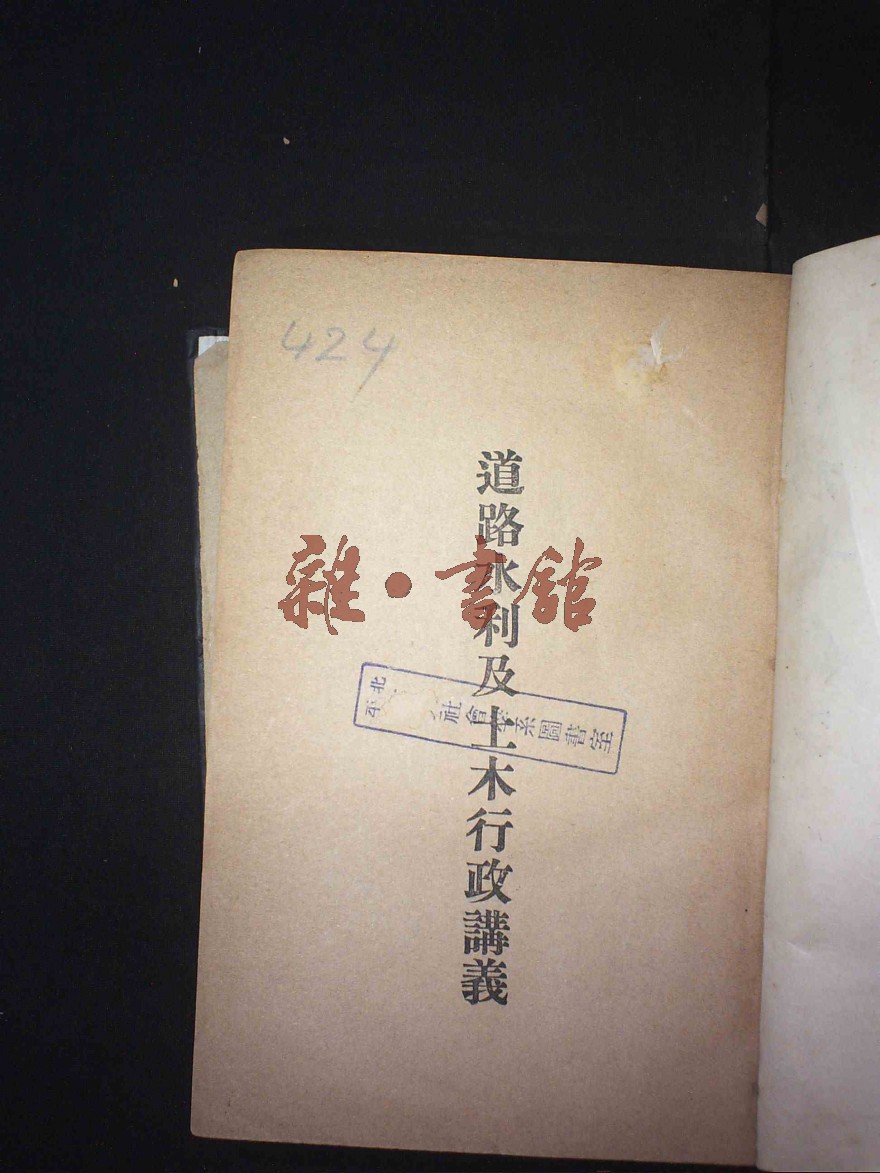 424
道路水利及土木行政講義
雜·書館
北平
社會調查所圖書室